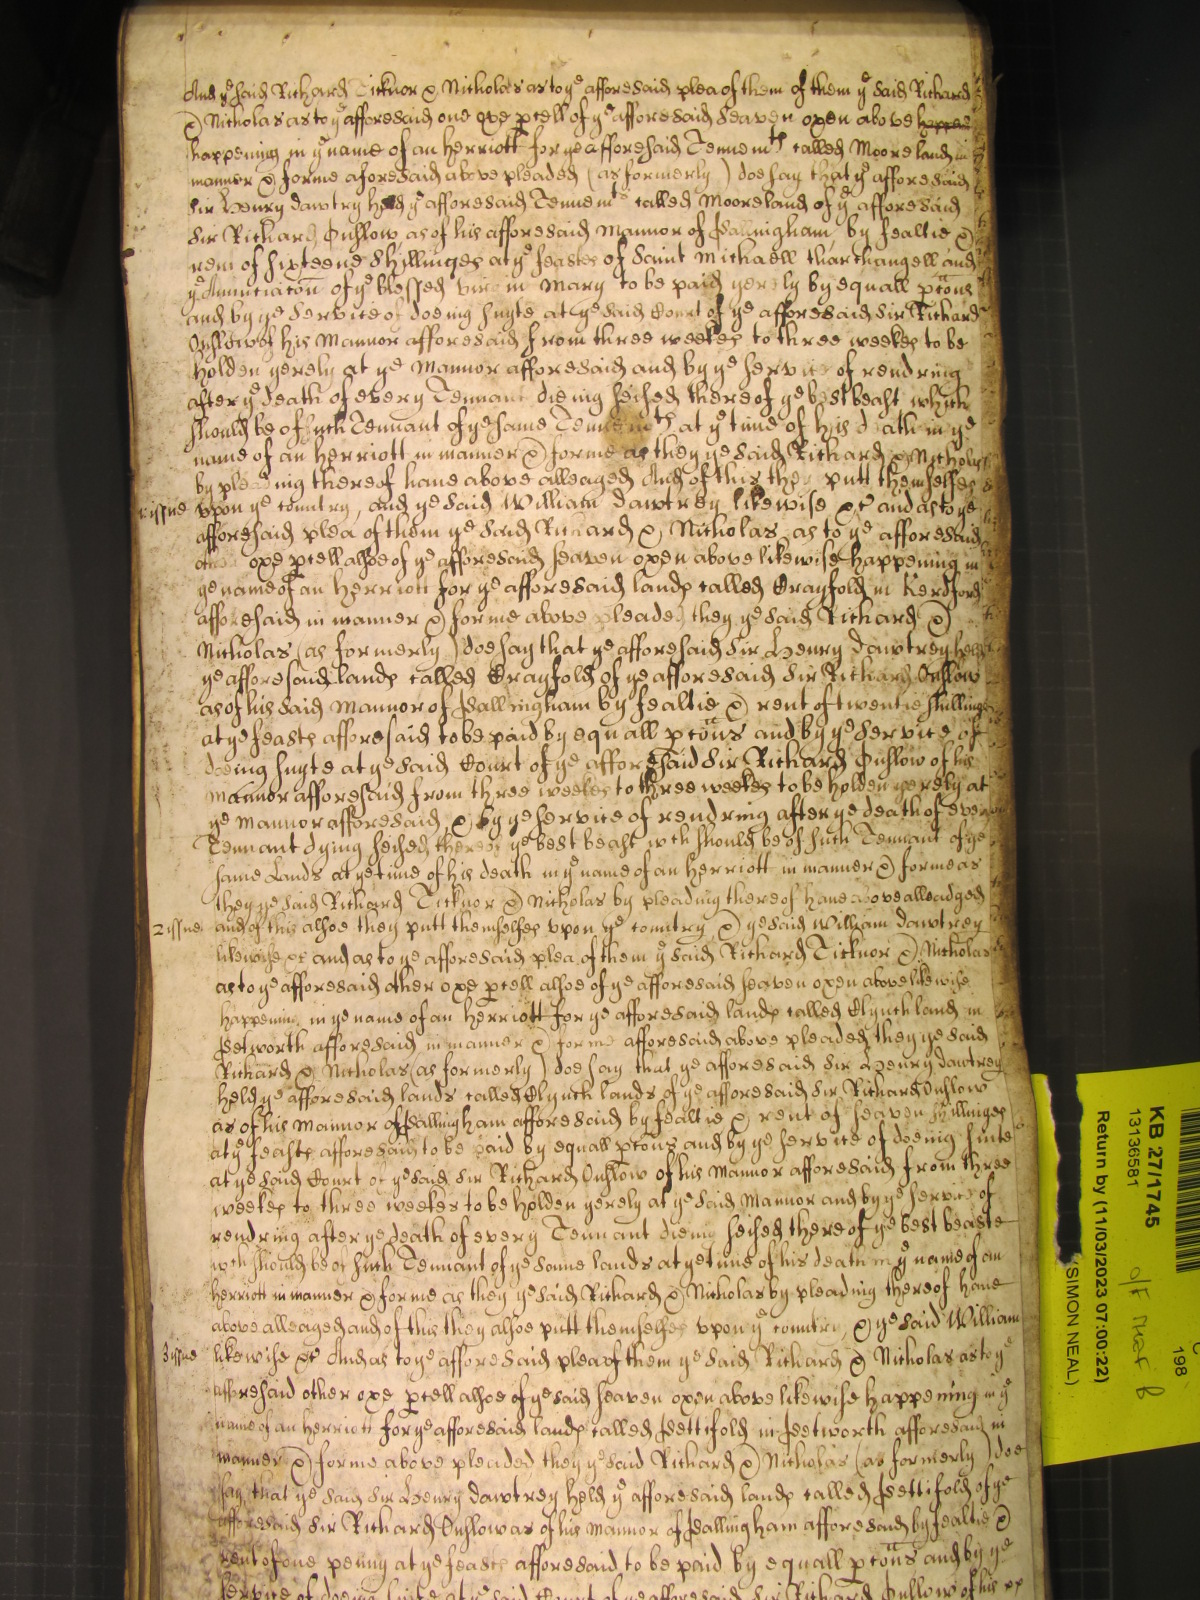 And ye said Richard Ticknor & Nicholas as to ye afforesaid plea of them of them ye said Richard
& Nicholas as to ye afforesaid one oxe pcell of ye afforesaid seaven oxen above happen
happening in ye name of an herriott for ye afforesaid Tennemts called Mooreland in
manner & forme aforesaid above pleaded (as formerly) doe say that ye afforesaid
Sir Henry dawtry held ye afforesaid Tennemts called Mooreland of ye afforesaid
Sir Richard Onslow as of his afforesaid Mannor of Pallingham by fealtie &
rent of sixteene shillinges at ye feastes of Saint Michaell tharchangell and
ye Annunciacon of ye blessed virgin Mary to be paid yerely by equall pcons
and by ye service of doeing suyte at ye said Court of ye afforesaid Sir Richard
Onslow of his Mannor afforesaid from three weekes to three weekes to be
holden yerely at ye Mannor afforesaid and by ye service of rendring
after ye death of every Tennant dieing seised thereof ye best beast which
should be of such Tennant of ye same Tennemts at ye time of his death in ye
name of an herriott in manner & forme as they ye said Richard & Nicholas
by pleading thereof have above alleaged And of this they putt themselfes
1 issue upon ye country, and ye said William dawtrey likewise &c and as to ye
afforesaid plea of them ye said Richard & Nicholas as to ye afforesaid
oxe pcell alsoe of ye afforesaid seaven oxen above likewise happening in
ye name of an Herriott for ye afforesaid landes called Crayfold in Kerdford
afforesaid in manner & forme above pleaded they ye said Richard &
Nicholas (as formerly) doe say that ye afforesaid Sir Henry dawtrey held
ye afforesaid landes called Crayfold of ye afforesaid Sir Richard Onslow
as of his said Mannor of Pallingham by fealtie & rent of twentie shillinges
at ye feastes afforesaid to be paid by equall pcons and by ye service of
doeing suyte at ye said Court of ye afforesaid Sir Richard Onslow of his
Mannor afforesaid from three weekes to three weekes to be holden yerely at
ye Mannor afforesaid & by ye service of rendring after ye death of every
Tennant dying seised thereof ye best beast wch should be of such Tennant of ye
same Lands at ye time of his death in ye name of an herriott in manner & forme as
they ye said Richard Ticknor & Nicholas by pleading thereof have above alleadged
2 issue and of this alsoe they putt themselfes upon ye country & ye said William dawtrey
likewise &c and as to ye afforesaid plea of them ye said Richard Ticknor & Nicholas
as to ye afforesaid other oxe pcell alsoe of ye afforesaid seaven oxen above likewise
happening in ye name of an Herriott for ye afforesaid landes called Clynchland in
Petworth afforesaid in manner & forme afforesaid above pleaded they ye said
Richard & Nicholas (as formerly) doe say that ye afforesaid Sir Henry dawtrey
held ye afforesaid lands called Clynch lands of ye afforesaid Sir Richard Onslow
as of his Mannor of Pallingham afforesaid by fealtie & rent of seaven shillinges
at ye feastes afforesaid to be paid by equall pcons and by ye service of doeing suite
at ye said Court of ye said Sir Richard Onslow of his Mannor afforesaid from three
weekes to three weekes to be holden yerely at ye said Mannor and by ye service of
rendring after ye death of every Tennant dieing seised thereof ye best beaste
wch should be of such Tennant of ye same lands at ye time of his death in ye name of an
herriott in manner & forme as they ye said Richard & Nicholas by pleading thereof have
above alleaged and of this they alsoe putt themselfes upon ye country, & ye said William
3 issue likewise &c And as to ye afforesaid plea of them ye said Richard & Nicholas as to ye
afforesaid other oxe pcell alsoe of ye said seaven oxen above likewise happening in ye
name of an herriott for ye afforesaid landes called Pettifold in Petworth afforesaid in
manner & forme above pleaded they ye said Richard & Nicholas (as formerly) doe
say that ye said Sir Henry dawtrey held ye afforesaid landes called Pettifold of ye
afforesaid Sir Richard Onslow as of his Mannor of Pallingham afforesaid by fealtie &
rent of one penny at ye feastes afforesaid to be paid by equall pcons and by ye
service of doeing suite at ye said Court of ye afforesaid Sir Richard Onslow of his
KB 27/1745
13136581
Return by (11/03/2023 07:00:22)
SIMON NEAL)
198